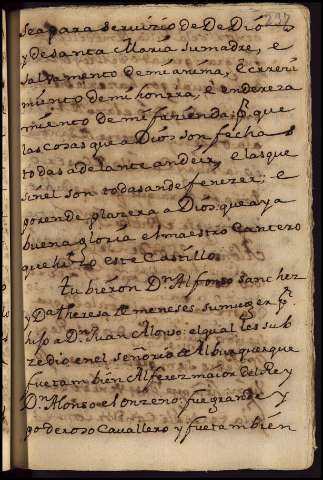 232
sea para servirio de De Dios
y de santa Maria su madre, e
salvamento de mi anima, E creri
miento de mi honrra, e endereza
miento de mi fasienda, p. que
las cosas que a Dios son fechas
todas adelante andèn, e las que
sin el son todas an de fenezer; e
porende plazera a Dios que aya
buena gloria el maestro Cantero
que hizo este Castillo.
Tubieron Dn. Alfonso Sanchez
y Da. theresa de meneses su muger pr.
hijo a Dn. Juan Alonso. el qual les sub
zedio en el señorio de Alburquerque
fue tambien Alferez maior del Rey
Dn. Alonso el onzeno. fue grande y
poderoso Cavallero y fue tambien